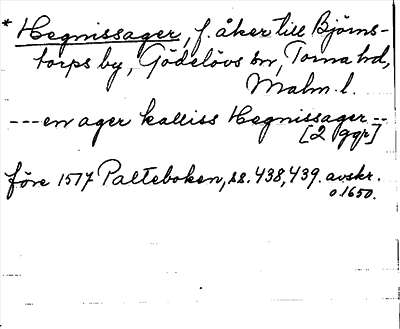 * Hegnissager, f. åker till Björns-
torps by, Gödelövs sn, Torna hd,
Malm. l.
--- en ager kalliss Hegnissager --
[2 ggr]
före 1517 Palteboken, ss. 438, 439. avskr.
o. 1650.